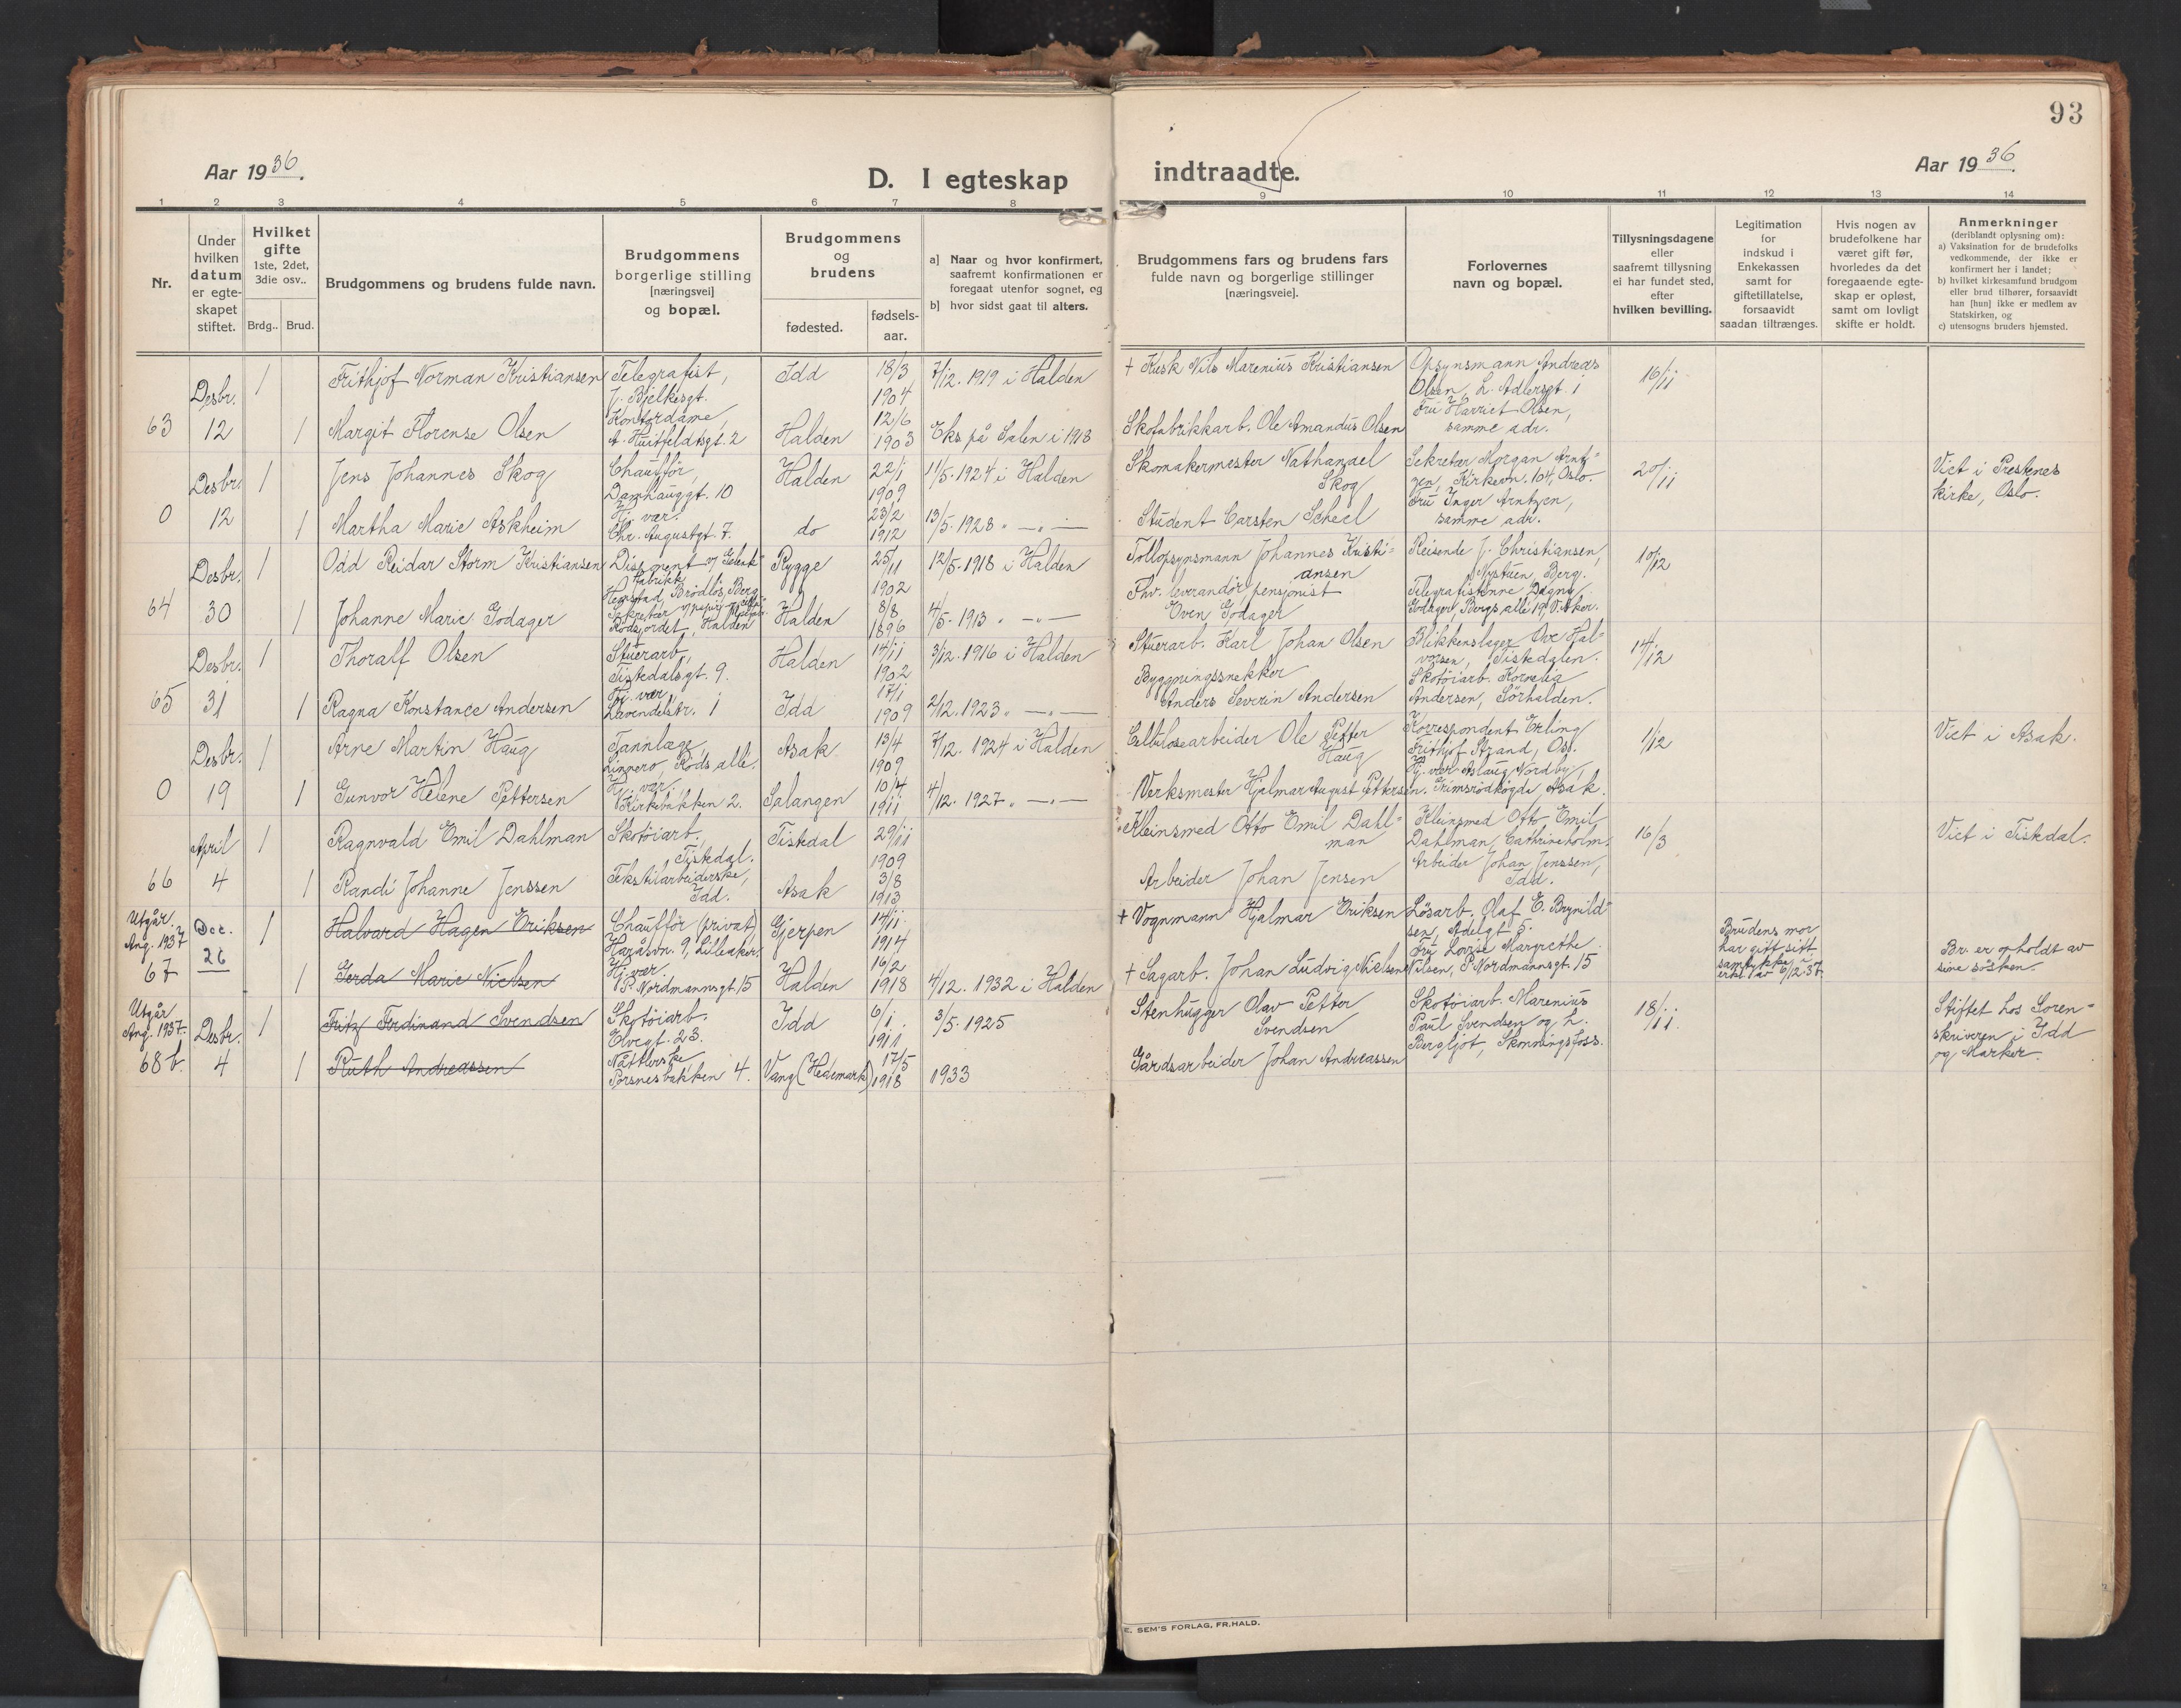 93
Aar 1936.
D. I egteskap indtraadte.
Aar 1936.
1 2 3 4 5 6 7 8 9 10 11 12 13 14
Nr.
Under hvilken datum er egteskapet stiftet.
Hvilket gifte
1ste, 2det, 3die osv..
Brdg.. Brud.
Brudgommens og brudens fulde navn.
Brudgommens borgerlige stilling [næringsvei] og bopæl.
Brudgommens og brudens
fødested.
fødselsaar.
a] Naar og hvor konfirmert, saafremt konfirmationen er foregaat utenfor sognet, og
b] hvor sidst gaat til alters.
Brudgommens fars og brudens fars fulde navn og borgerlige stillinger [næringsveie].
Forlovernes navn og bopæl.
Tillysningsdagene eller saafremt tillysning ei har fundet sted, efter hvilken bevilling.
Legitimation for indskud i Enkekassen samt for giftetillatelse, forsaavidt saadan tiltrænges.
Hvis nogen av brudefolkene har været gift før, hvorledes da det foregaaende egteskap er opløst, samt om lovligt skifte er holdt.
Anmerkninger
(deriblandt oplysning om):
a) Vaksination for de brudefolks vedkommende, der ikke er konfirmert her i landet;
b) hvilket kirkesamfund brudgom eller brud tilhører, forsaavidt han [hun] ikke er medlem av Statskirken, og
c) utensogns bruders hjemsted.
63 Desbr. 12
1 Frithjof Norman Kristiansen Telegrafist, J. Bjelkesgt. Idd 18/3 1904 7/12. 1919 i Halden † Kusk Nils Marenius Kristiansen Opsynsmann Andreas Olsen, L. Adlersgt. 1 16/11
1 Margit Florense Olsen Kontordame, A. Huitfeldtsgt. 2 Halden 12/6 1903 Eks på Salen i 1918 Skofabrikkarb. Ole Amandus Olsen Fru Harriet Olsen, samme adr.
0 Desbr. 12
1 Jens Johannes Skog Chauffør, Damhauggt. 10 Halden 22/1 1909 11/5. 1924 i Halden Skomakermester Nathanael Skog Sekretær Morgan Arntzen, Kirkevn. 104, Oslo. 20/11 Viet i Prestenes kirke, Oslo.
1 Martha Marie Askheim Hj. vær. Chr. Augustgt. 7. do 23/2 1912 13/5. 1928 " — " — Student Carsten Scheel Fru Inger Arntzen, samme adr.
64 Desbr. 30
1 Odd Reidar Storm Kristiansen Disponent v/ fabrikk Hegnstad, Brödlös, Berg Rygge 25/11 1902 12/5. 1918 i Halden Tollopsynsmann Johannes Kristiansen Reisende J. Christiansen, Nystuen, Berg. 10/12
1 Johanne Marie Godager Sekretær Rödsjordet, Halden Halden 8/8 1896 4/5. 1913 " — " — Fhv. leverandör, pensjonist Even Godager Telegrafistinne Dagny Godager, Bergs alle 19, V. Aker.
65 Desbr. 31
1 Thoralf Olsen Stuerarb, Tistedalsgt. 9. Halden 14/11 1902 3/12. 1916 i Halden Stuerarb. Karl Johan Olsen Blikkenslager Ove Halvorsen, Tistedalen. 14/12
1 Ragna Konstance Andersen Hj. vær, Lavendelstr. 1 Idd 17/1 1909 2/12. 1923 " — " — Bygningssnekker Anders Severin Andersen Skotöiarb. Kornelia Andersen, Sörhalden.
0 Desbr. 19
1 Arne Martin Haug Tannlæge, Linnero, Röds allé. Asak 13/4 1909 7/12. 1924 i Halden Cellulosearbeider Ole Petter Haug Korrespondent Erling Frithjof Strand, Os. 1/12 Viet i Asak.
1 Gunvor Helene Pettersen Hj. vær, V. Kirkebakken 2. Salangen 10/4 1911 4/12. 1927 " — " — Verksmester Hjalmar August Pettersen. Hj. vær Aslaug Nordby, Grimsrödhögda, Asak.
66 April 4
1 Ragnvald Emil Dahlman Skotöiarb. Tistedal. Tistedal 29/11 1909 Kleinsmed Otto Emil Dahlman Kleinsmed Otto Emil Dahlman, Cathrineholm. 16/3 Viet i Tistedal.
1 Randi Johanne Jenssen Tekstilarbeiderske, Idd. Asak 3/8 1913 Arbeider Johan Jensen Arbeider Johan Jenssen, Idd.
Utgår. Ang. 1937 67 Dec. 26
1 Halvard Hagen Eriksen Chauffør (privat) Haråsvn. 9, Lilleaker. Gjerpen 14/11. 1914 † Vognmann Hjalmar Eriksen Lösarb. Olaf E. Brynildsen, Adelgt 8. Brudens mor har gitt sitt samtykke i erkl. av 6/12-37 Br. er opholdt av sine sösken.
1 Gerda Marie Nielsen Hj. vær. P. Nordmannsgt. 15 Halden 16/2 1918 4/12. 1932 i Halden † Sagarb. Johan Ludvig Nielsen Fru Lovise Margrethe Nilsen, P. Nordmannsgt. 15
Utgår Ang. 1937. 68 b. Desbr. 4
1 Fritz Ferdinand Svendsen Skotöiarb. Elvegt. 23. Idd 6/1 1911 3/5. 1925 Stenhugger Olav Petter Svendsen Skotöiarb. Marenius Paul Svendsen og h. Bergljot, Skonningsfoss. 18/11. Stiftet hos Sorenskriveren i Idd og Marker.
1 Ruth Andreassen Nåtlerske, Porsnesbakken 4. Vang (Hedemark) 17/5 1918 1933 Gårdsarbeider Johan Andreassen
E. SEM'S FORLAG, FR.HALD.